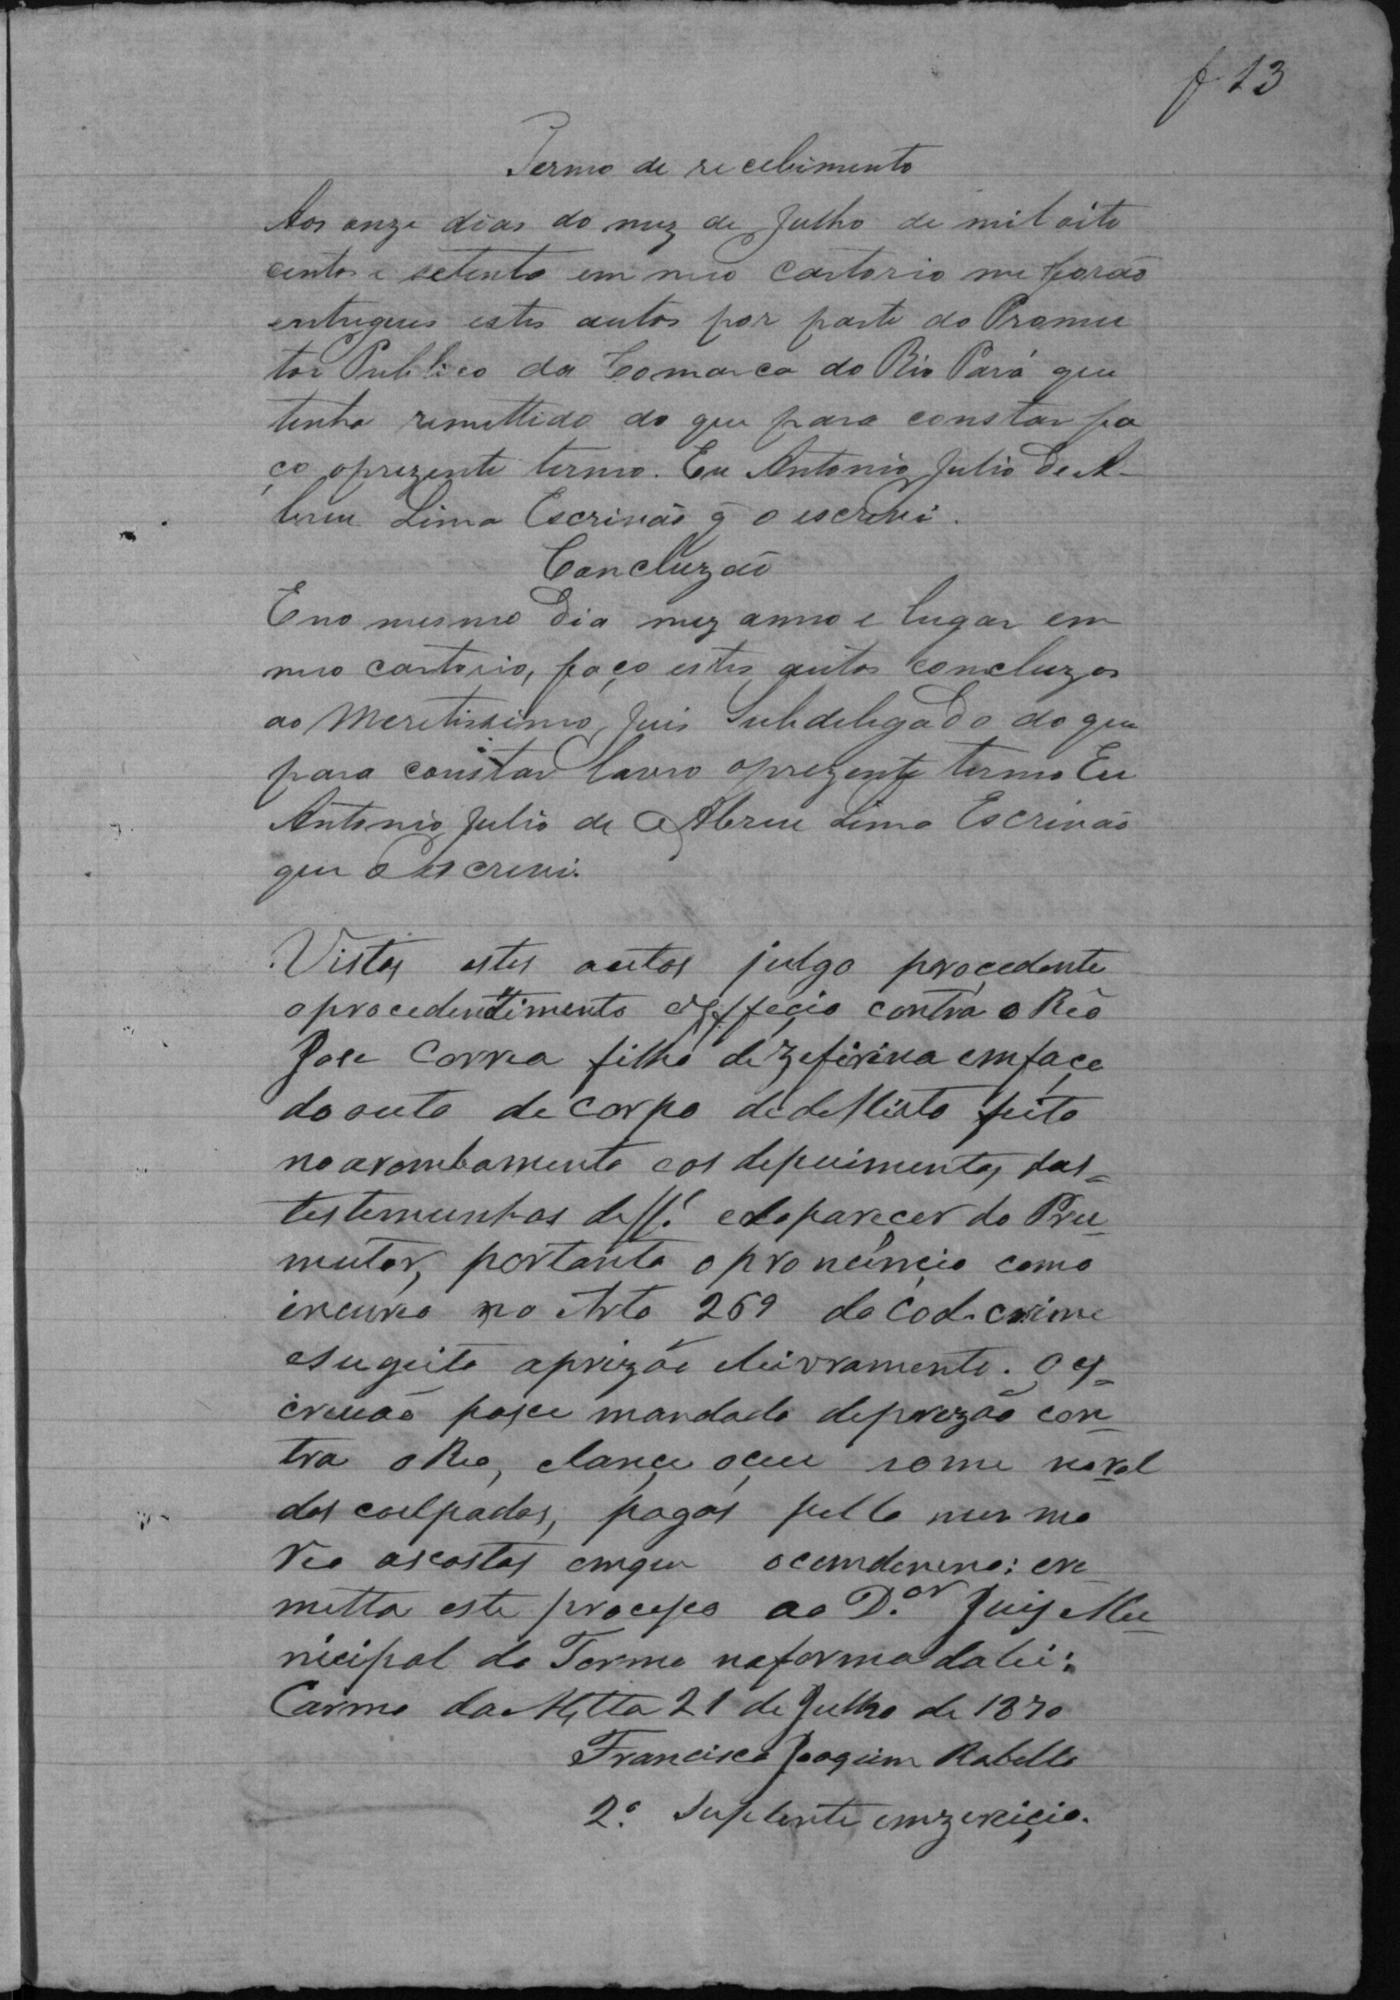 f 13
Termo de recebimento
Aos onze dias do mez de Julho de mil oito
centos e setenta em meo cartorio me forão
entregues estes autos por parte do Promu
tor Publico da Comarca do Rio Pará que
tenha remettido do que para constar fa
ço oprezente termo. Eu Antonio Julio de A-
breu Lima Escrivão q̃ o escrevi.
Concluzão
E no mesmo dia mez anno e lugar em
meo cartorio, faço estes autos concluzos
ao Meretissimo Juis Subdelegado do que
para constar lavro oprezente termo Eu
Antonio Julio de Abreu Lima Escrivão
que o Escrevi.
Vistos estes autos julgo porocedente
contra o Reó
Jose Correa filho de Zefirina emfaçe
do auto de Corpo dedellicto feito
noarombamento eos depuimentos das=
testemunhas de fl. eoparecer do Pru=
mutor, portanto opronúncio como
incurço no Arto 269 do Cod. crime
esugeito aprizão eleivramento. O es=
crivão pase mandado deprizão con=
tra oReo, elançe oceu nome norol
dos coulpados, pagas pello mesmo
reo ascostas emque ocomdeneno: ere
metta este proceço ao D.or Juis Mu=
nicipal do Termo naforma dalei:
Carmo da Matta 21 de Julho de 1870
Francisco Joaquim Rabello
2.º Suplente emzerciçio.